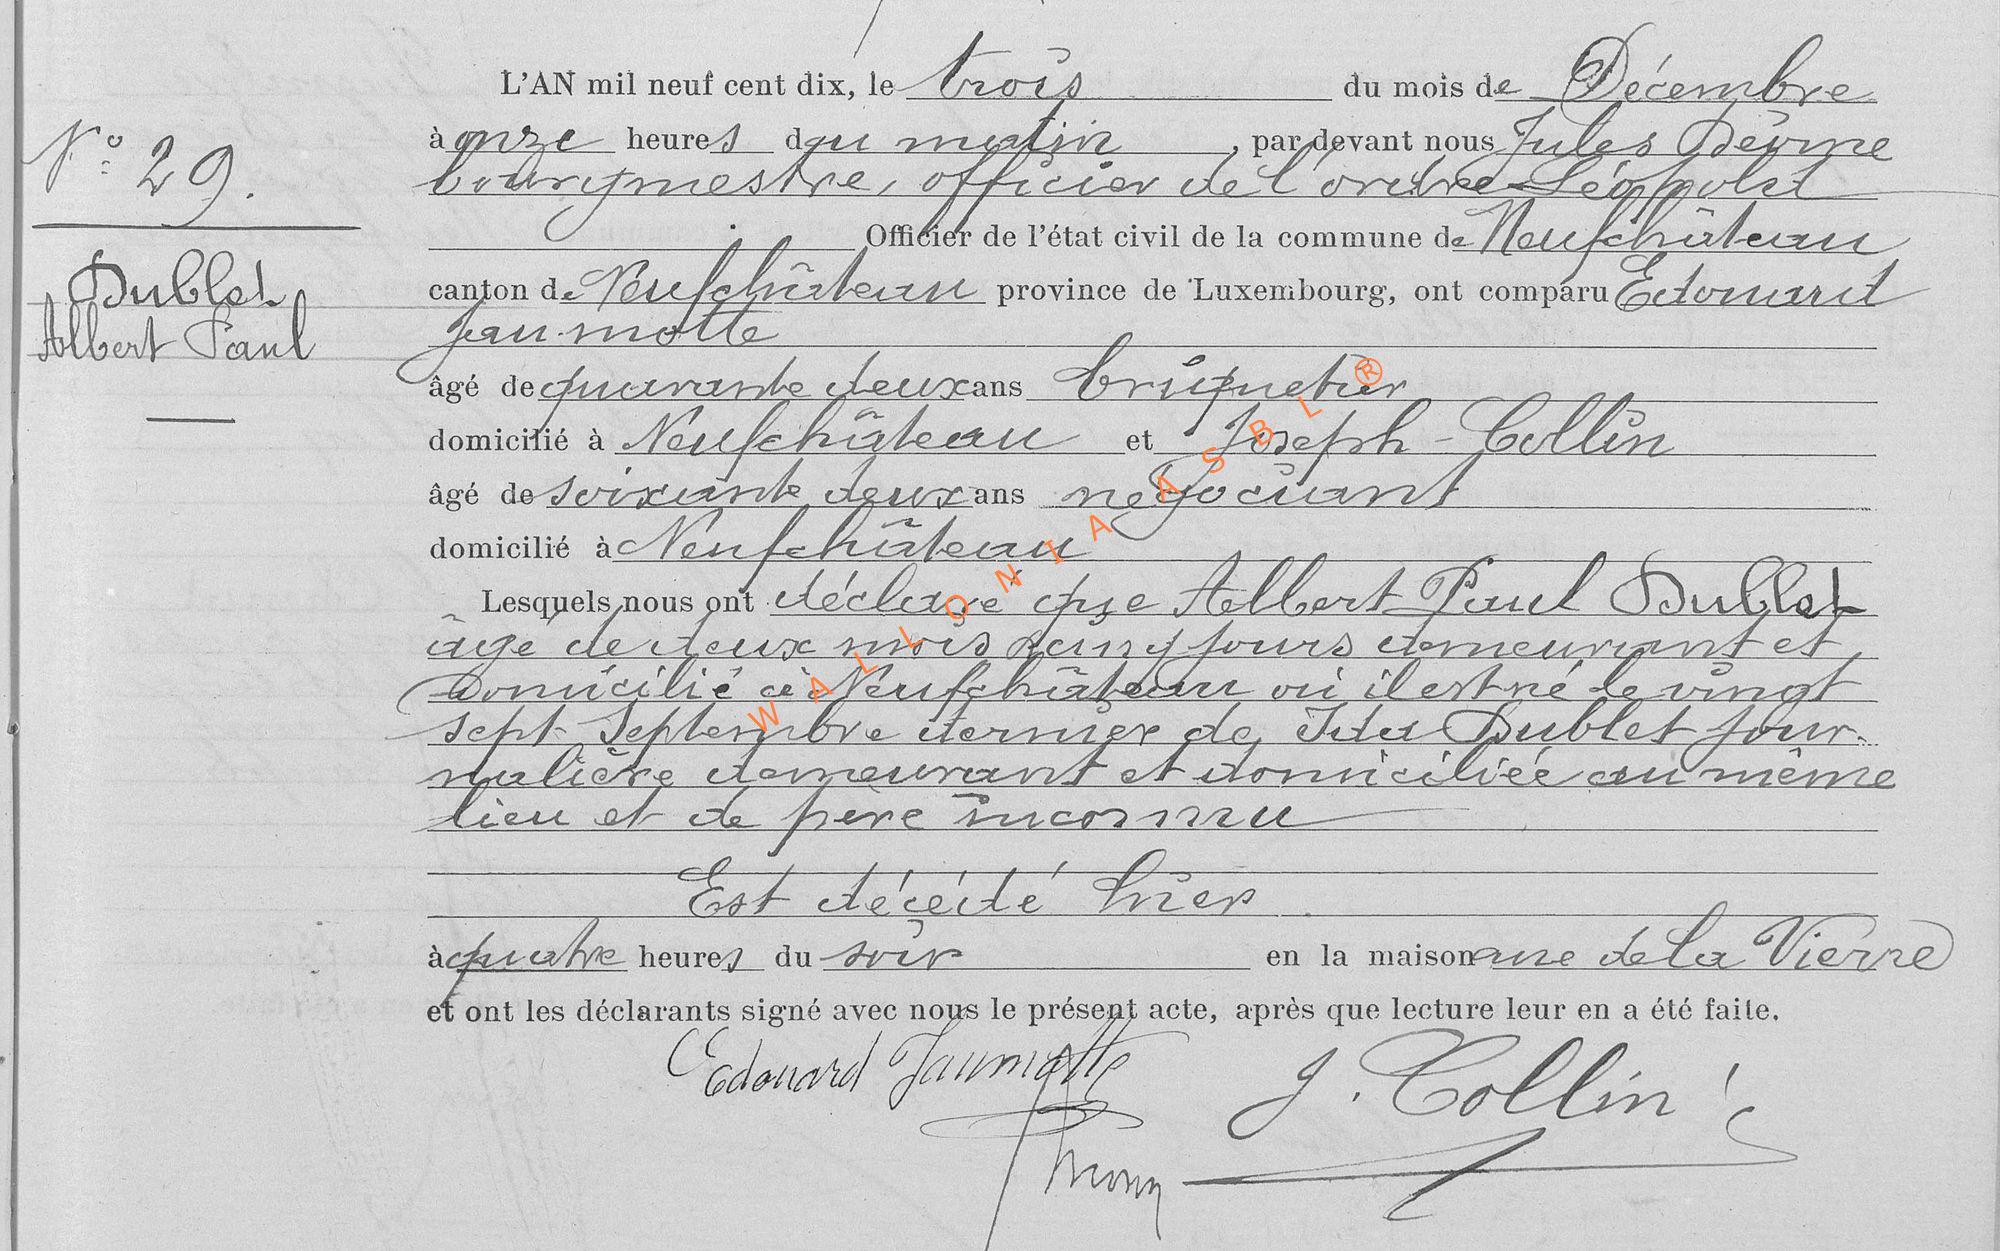 L'AN mil neuf cent dix, le trois du mois de Décembre
à onze heures du matin, par devant nous Jules
bourgmestre, officier de l'ordre Léopold
Officier de l'état civil de la commune de Neufchâteau
canton de Neufchâteau province de Luxembourg, ont comparu Edouard
Jaumotte
âgé de quarante deux ans briquetier
domicilié à Neufchâteau et Joseph Collin
âgé de soixante deux ans négociant
domicilié à Neufchâteau
Lesquels nous ont déclaré que Albert Paul Dublet
âgé de deux mois cinq jours demeurant et
domicilié à Neufchâteau où il est né le vingt
sept Septembre dernier de Ida Dublet jour-
nalière demeurant et domiciliée au même
lieu et de père inconnu
Est décédé hier
à quatre heures du soir en la maison rue de la Vierre
et ont les déclarants signé avec nous le présent acte, après que lecture leur en a été faite.
Edouard Jaumotte J. Collin
N° 29.
Dublet
Albert Paul
WALLONIA ASBL ®